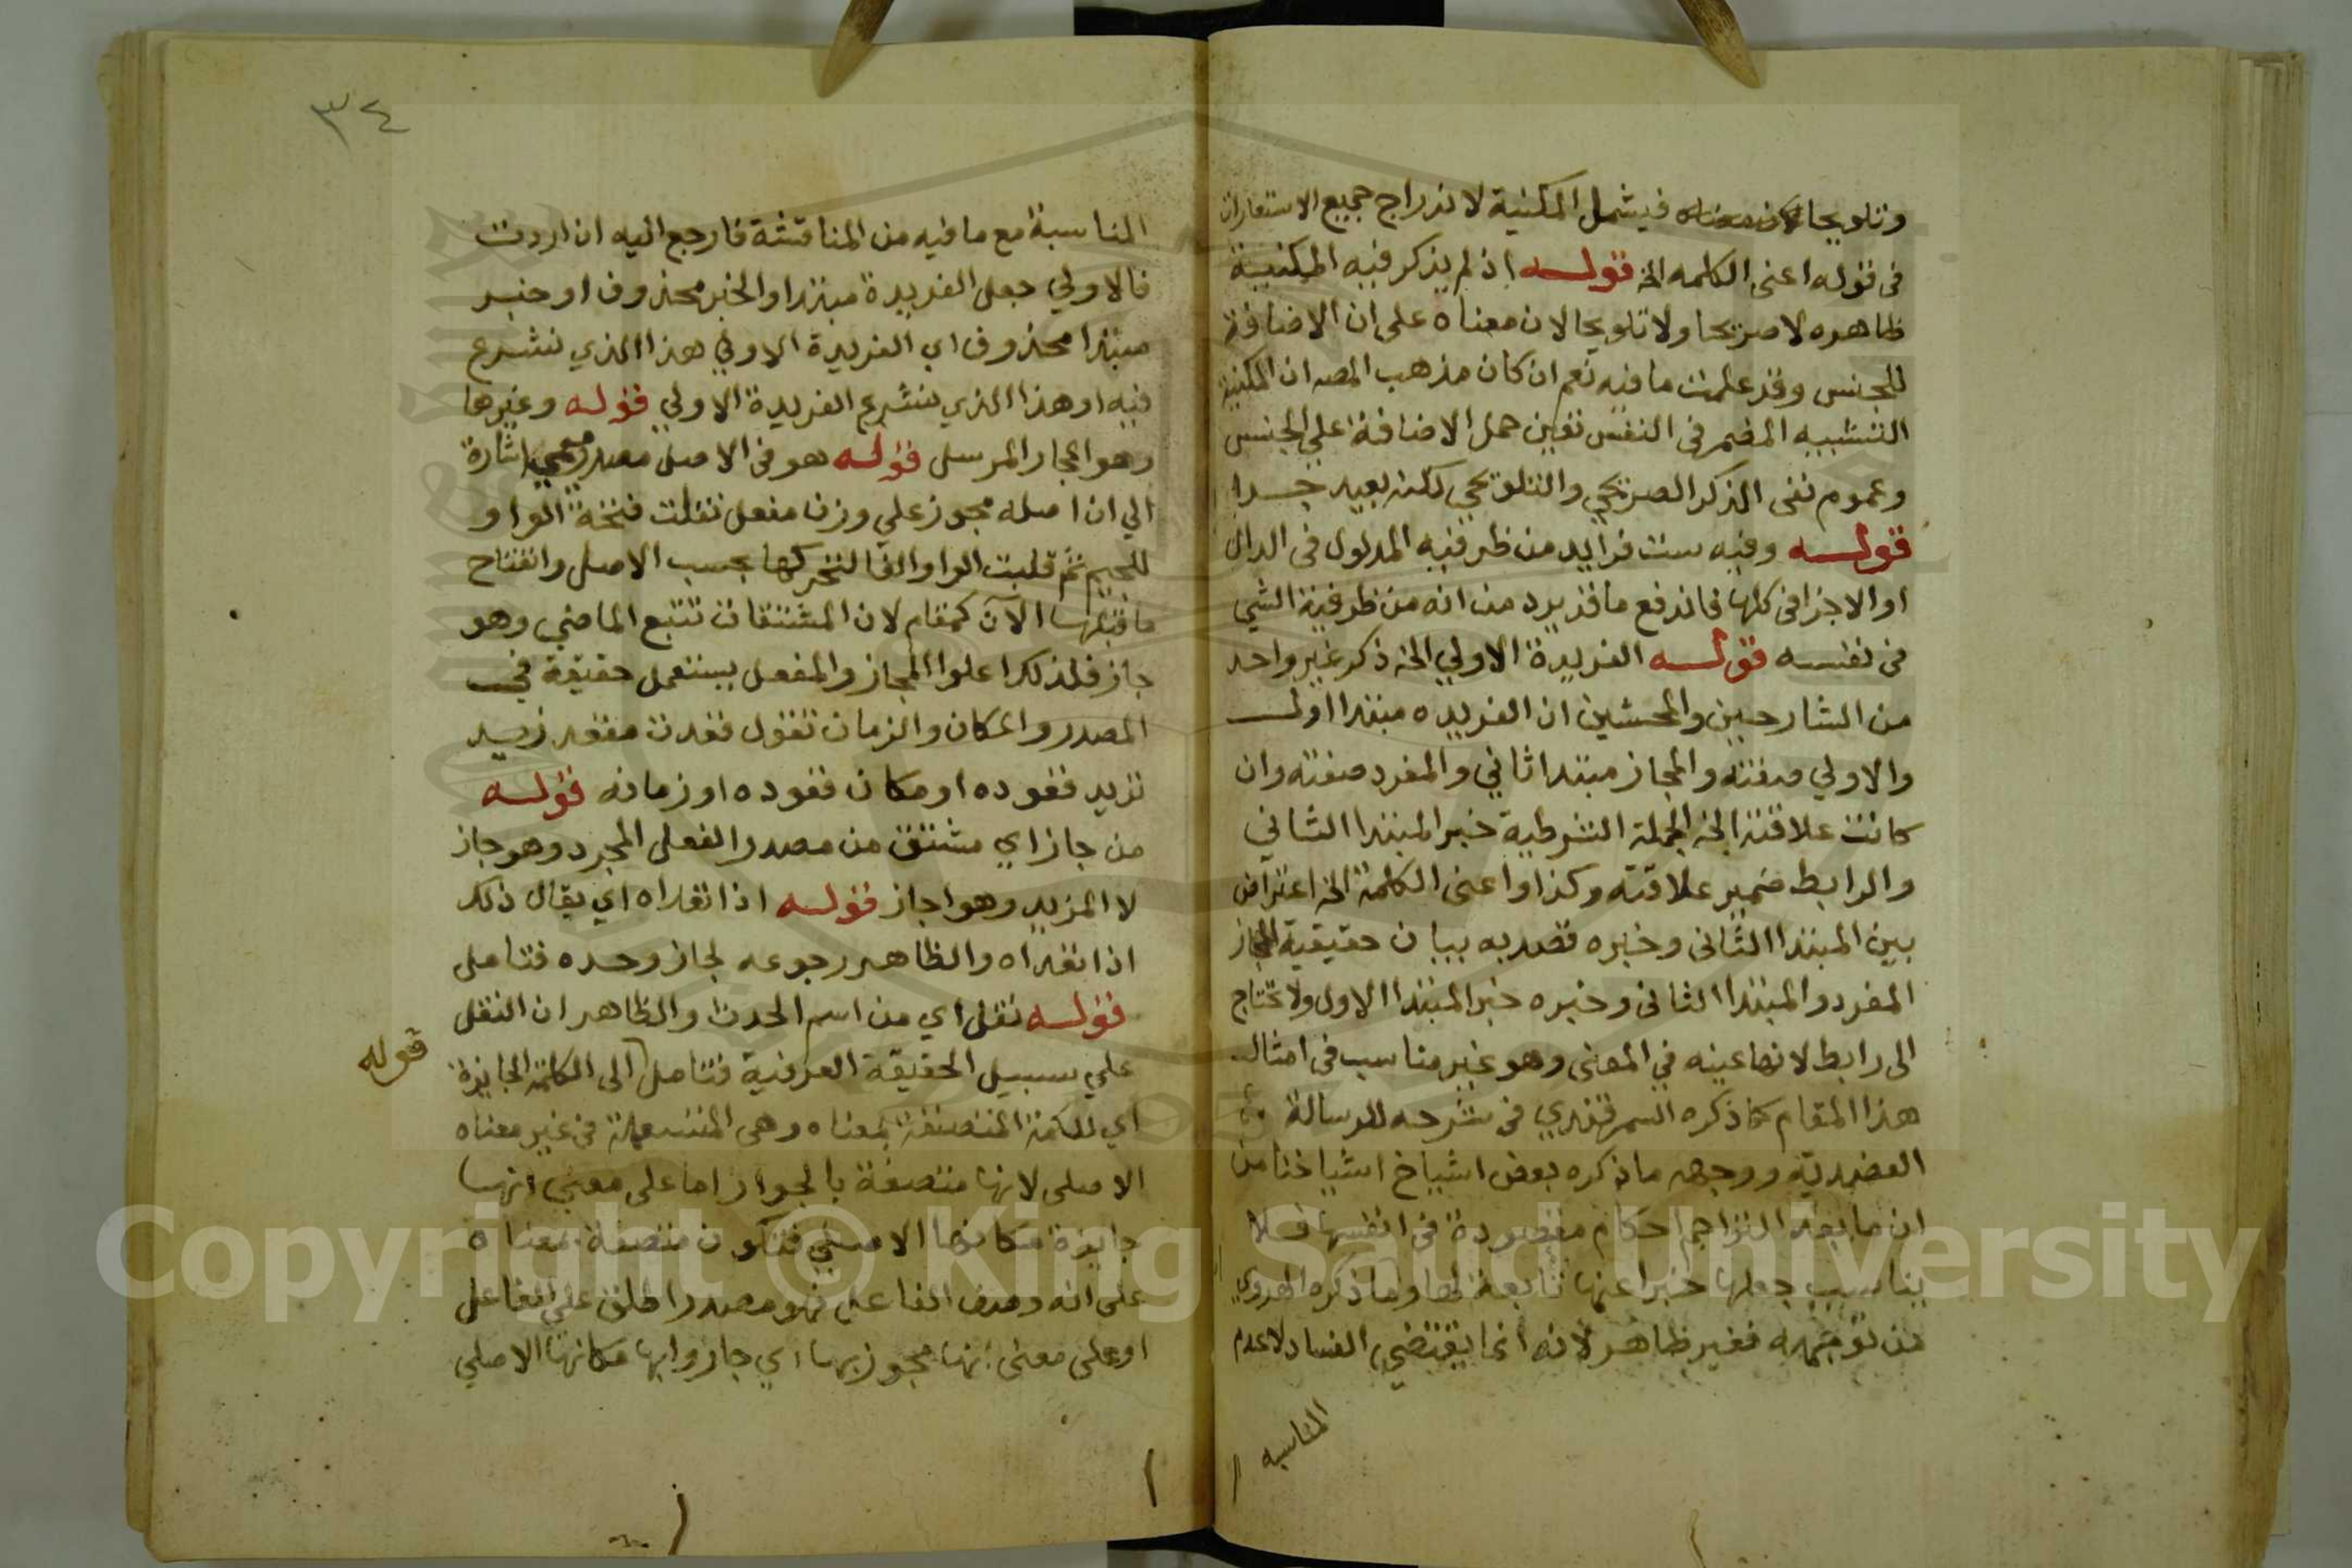 وتلويحا فيشمل المكنية لاندراج جميع الاستعارات
فى قوله اعنى الكلمه الخ قوله اذ لم يذكر فيه المكنية
ظاهره لا صريحا ولا تلويحا لان معناه على ان الاضافة
للجنس وقد علمت ما فيه نعم ان كان مذهب المصه ان المكنية
التشبيه المضمر فى النفس تعين حمل الاضافة علي الجنس
وعموم نفى الذكر الصريحي والتلويحي لكنه بعيد جدا
قوله وفيه ست فرايد من ظرفيه المدلول فى الدال
او الاجزا فى كلها فاندفع ما قد يرد من انه من ظرفية الشي
فى نفسه قوله الفريدة الاولي الخ ذكر غير واحد
من الشارحين والمحشين ان الفريده مبتدا اول
والاولي صفته والمجاز مبتدا ثاني والمفرد صفته وان
كانت علاقته الخ الجملة الشرطية خبر المبتدا الثاني
والرابط ضمير علاقته وكذا واعنى الكلمة الخ اعتراض
بين المبتدا الثانى وخبره قصد به بيان حقيقية المجاز
المفرد والمبتدا الثانى وخبره خبر المبتدا الاول ولا تحتاج
الى رابط لانها عينه في المعنى وهو غير مناسب فى امثال
هذا المقام كما ذكره السمرقندي فى شرحه للرسالة
العضدية ووجهه ما ذكره بعض اشياخ اشياخنا من
ان ما بعد التراجم احكام مقصودة فى انفسها فلا
يناسب جعلها خبرا عنها تابعة لها وما ذكره الهروي
من توجيهه فغير ظاهر لانه انما يقتضي الفساد لا عدم
المناسبه
٣٤
المناسبة مع ما فيه من المناقشة فارجع اليه ان اردت
فالاولي جعل الفريدة مبتدا والخبر محذوف او خبر
مبتدا محذوف اي الفريدة الاولي هذا الذي نشرع
فيه او هذا الذي نشرع الفريدة الاولي قوله وغيرها
وهو المجاز المرسل قوله هو فى الاصل مصدر ميمي اشارة
الي ان اصله مجوز علي وزن مفعل نقلت فتحة الواو
للجيم ثم قلبت الواو الفا لتحركها بحسب الاصل وانفتاح
ما قبلها الآن كمقام لان المشتقات تتبع الماضي وهو
جاز فلذلك اعلوا المجاز والمفعل يستعمل حقيقة في
المصدر والمكان والزمان تقول قعدت مقعد زيد
تريد قعوده او مكان قعوده او زمانه قوله
من جاز اي مشتق من مصدر الفعل المجرد وهو جاز
لا المزيد وهو اجاز قوله اذا تعداه اي يقال ذلك
اذا تعداه والظاهر رجوعه لجاز وحده فتامل
قوله نقل اي من اسم الحدث والظاهر ان النقل
علي سبيل الحقيقة العرفية فتامل الى الكلمة الجايزة
قوله
اي للكلمة المتصفة بمعناه وهى المستعملة فى غير معناه
الاصلى لانها متصفة بالجواز اما على معني انها
جايزة مكانها الاصلي فتكون متصفة بمعناه
على انه وصف الفاعل فهو مصدر اطلق على الفاعل
او على معنى انها مجوز بها اي جازوا بها مكانها الاصلي
Copyright © King Saud University